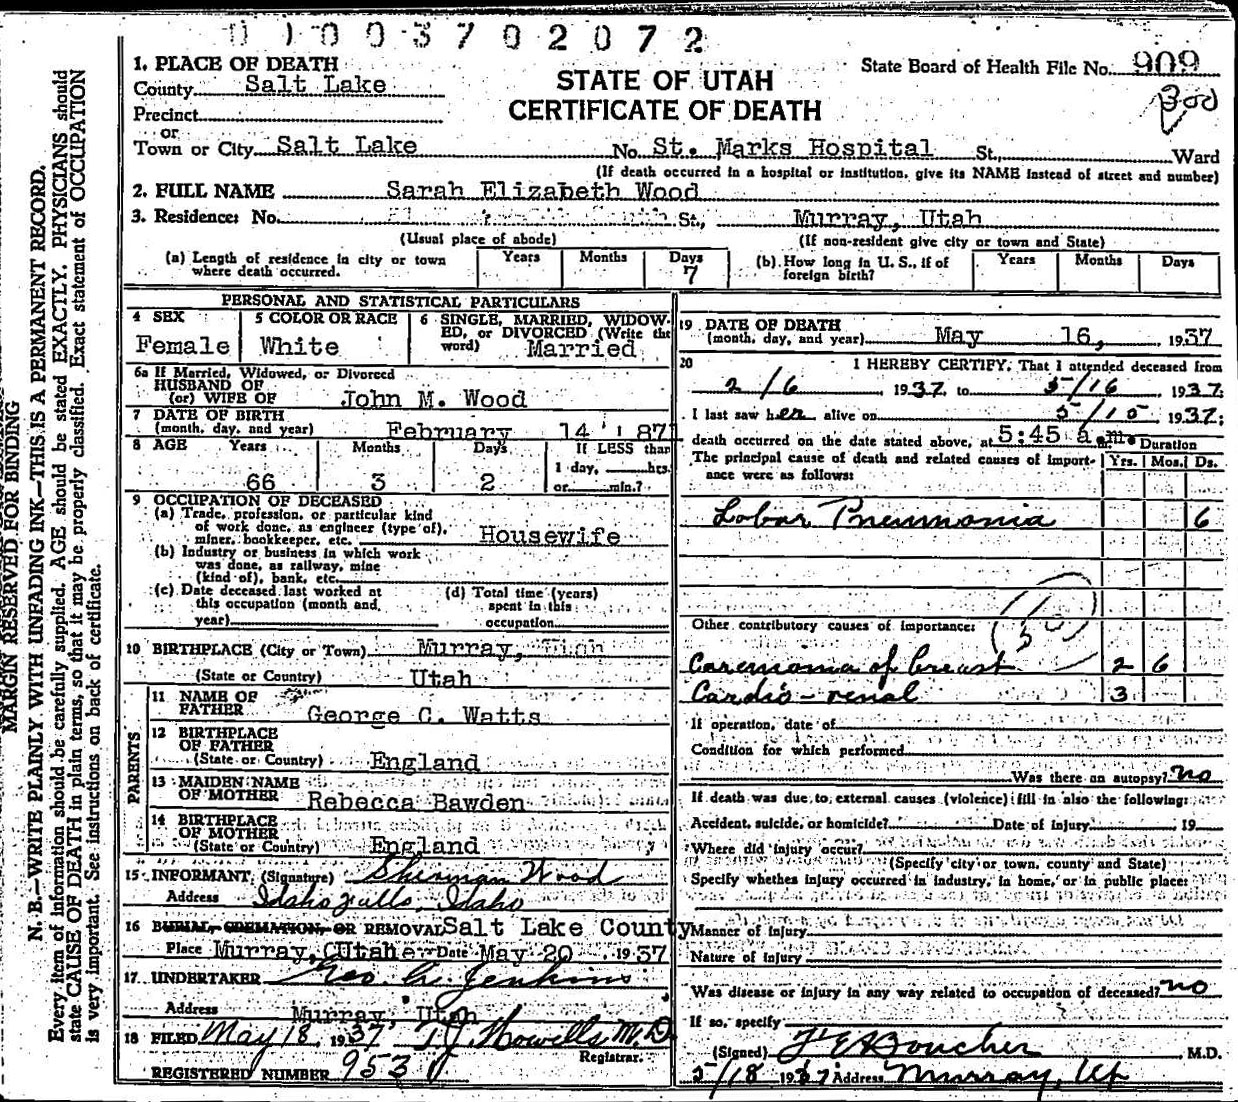 0 1 0 0 3 7 0 2 0 7 2
1. PLACE OF DEATH
County Salt Lake
Precinct
or
Town or City Salt Lake
STATE OF UTAH
CERTIFICATE OF DEATH
State Board of Health File No. 909
No. St. Marks Hospital St., Ward
(If death occurred in a hospital or institution, give its NAME instead of street and number)
2. FULL NAME Sarah Elizabeth Wood
3. Residence: No. St., Murray, Utah
(Usual place of abode) (If non-resident give city or town and State)
(a) Length of residence in city or town where death occurred. Years Months Days 7
(b) How long in U. S., if of foreign birth? Years Months Days
PERSONAL AND STATISTICAL PARTICULARS
4 SEX Female
5 COLOR OR RACE White
6 SINGLE, MARRIED, WIDOW-
ED, or DIVORCED (Write the
word) Married
6a If Married, Widowed, or Divorced
HUSBAND OF
(or) WIFE OF John M. Wood
7 DATE OF BIRTH
(month, day, and year) February 14 1871
8 AGE Years Months Days If LESS than
1 day, hrs.
66 3 2 or min.?
9 OCCUPATION OF DECEASED
(a) Trade, profession, or particular kind
of work done, as engineer (type of),
miner, bookkeeper, etc. Housewife
(b) Industry or business in which work
was done, as railway, mine
(kind of), bank, etc.
(c) Date deceased last worked at
this occupation (month and
year)
(d) Total time (years)
spent in this
occupation
10 BIRTHPLACE (City or Town) Murray, Utah
(State or Country) Utah
PARENTS
11 NAME OF
FATHER George C. Watts
12 BIRTHPLACE
OF FATHER
(State or Country) England
13 MAIDEN NAME
OF MOTHER Rebecca Bawden
14 BIRTHPLACE
OF MOTHER
(State or Country) England
15 INFORMANT (Signature) Sherman Wood
Address Idaho Falls, Idaho
16 BURIAL, CREMATION, OR REMOVAL Salt Lake County
Place Murray, Utah Date May 20 1937
17 UNDERTAKER Geo. A. Jenkins
Address Murray, Utah
18 FILED May 18, 1937 T. J. Howells M.D.
Registrar.
REGISTERED NUMBER 953
19 DATE OF DEATH
(month, day, and year) May 16, 1937
20 I HEREBY CERTIFY, That I attended deceased from
2/6 1937 to 5/16 1937;
I last saw her alive on 5/15 1937;
death occurred on the date stated above, at 5:45 a.m. Duration
The principal cause of death and related causes of import-
ance were as follows: Yrs. Mos. Ds.
Lobar Pneumonia 6
Other contributory causes of importance:
Carcenoma of breast 2 6
Cardio-renal 3
If operation, date of
Condition for which performed
Was there an autopsy? no
If death was due to external causes (violence) fill in also the following:
Accident, suicide, or homicide? Date of injury 19
Where did injury occur?
(Specify city or town, county and State)
Specify whether injury occurred in industry, in home, or in public place:
Manner of Injury
Nature of injury
Was disease or injury in any way related to occupation of deceased? no
If so, specify
(Signed) Boucher M.D.
5/18 1937 Address Murray, Ut
MARGIN RESERVED FOR BINDING
N. B.—WRITE PLAINLY WITH UNFADING INK—THIS IS A PERMANENT RECORD.
Every item of information should be carefully supplied. AGE should be stated EXACTLY. PHYSICIANS should
state CAUSE OF DEATH in plain terms, so that it may be properly classified. Exact statement of OCCUPATION
is very important. See instructions on back of certificate.